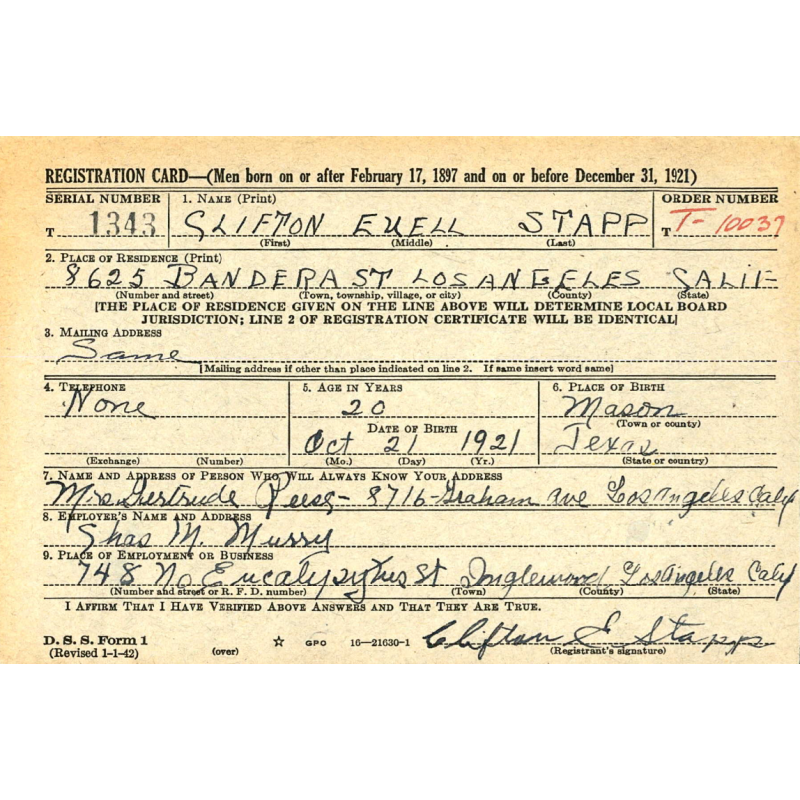 REGISTRATION CARD—(Men born on or after February 17, 1897 and on or before December 31, 1921)
SERIAL NUMBER 1. NAME (Print) ORDER NUMBER
T 1343 CLIFTON EUELL STAPP T T-10037
(First) (Middle) (Last)
2. PLACE OF RESIDENCE (Print)
8625 BANDERA ST LOS ANGELES CALIF
(Number and street) (Town, township, village, or city) (County) (State)
[THE PLACE OF RESIDENCE GIVEN ON THE LINE ABOVE WILL DETERMINE LOCAL BOARD
JURISDICTION; LINE 2 OF REGISTRATION CERTIFICATE WILL BE IDENTICAL]
3. MAILING ADDRESS
Same
[Mailing address if other than place indicated on line 2. If same insert word same]
4. TELEPHONE 5. AGE IN YEARS 6. PLACE OF BIRTH
None 20 Mason
DATE OF BIRTH (Town or county)
Oct 21 1921 Texas
(Exchange) (Number) (Mo.) (Day) (Yr.) (State or country)
7. NAME AND ADDRESS OF PERSON WHO WILL ALWAYS KNOW YOUR ADDRESS
Mrs Gertrude - 8716 - Graham ave Los Angeles Calif
8. EMPLOYER'S NAME AND ADDRESS
Chas M. Murry
9. PLACE OF EMPLOYMENT OR BUSINESS
748 No Eucalyptus St Inglewood Los Angeles Calif
(Number and street or R. F. D. number) (Town) (County) (State)
I AFFIRM THAT I HAVE VERIFIED ABOVE ANSWERS AND THAT THEY ARE TRUE.
D. S. S. Form 1 ☆ GPO 16—21630-1 Clifton E. Stapp
(Revised 1-1-42) (over) (Registrant's signature)